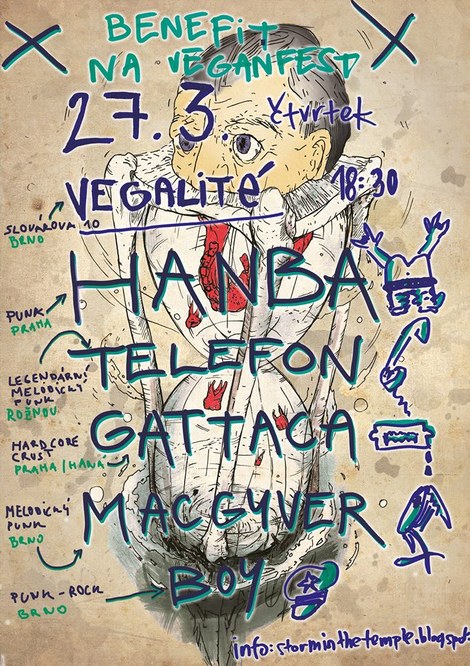 BENEFIT
NA VEGANFEST
27. 3. čtvrtek
VEGALITÉ 18:30
SLOVÁKOVA 10
BRNO
HANBA
PUNK
PRAHA
TELEFON
LEGENDÁRNÍ
MELODICKÝ
PUNK
ROŽNOV
GATTACA
HARDCORE
CRUST
PRAHA/HANÁ
MACGYVER
MELODICKÝ
PUNK
BRNO
BOY
PUNK-ROCK
BRNO
info: storminthetemple.blogspot.